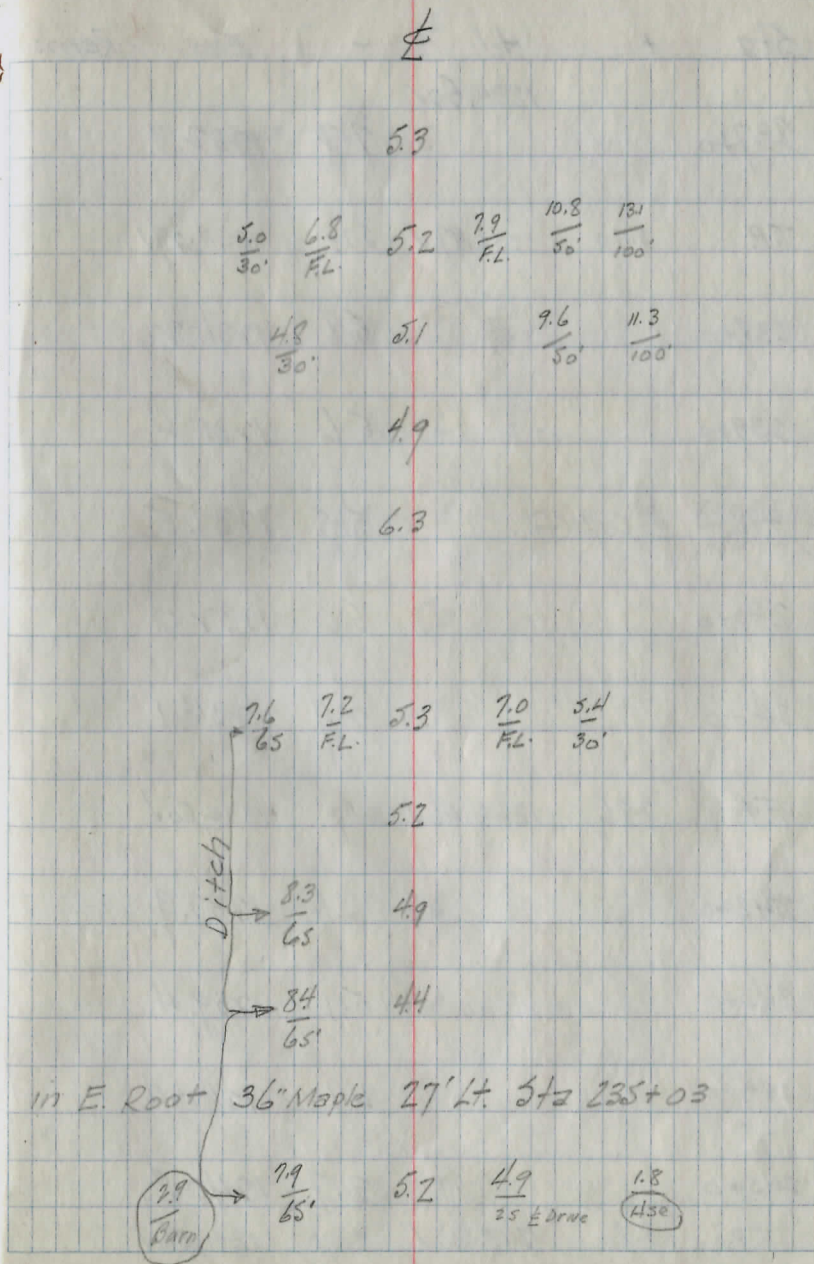 ℄
5.3
5.0/30' 6.8/F.L. 5.2 7.9/F.L. 10.8/50' 13.1/100'
4.8/30' 5.1 9.6/50' 11.3/100'
4.9
6.3
7.6/65 7.2/F.L. 5.3 7.0/F.L. 5.4/30'
5.2
Ditch
8.3/65 4.9
8.4/65' 4.4
in E. Root 36" Maple 27' Lt. Sta 235+03
7.9/Barn 7.9/65' 5.2 4.9/25 ℄ Drive 1.8/Hse